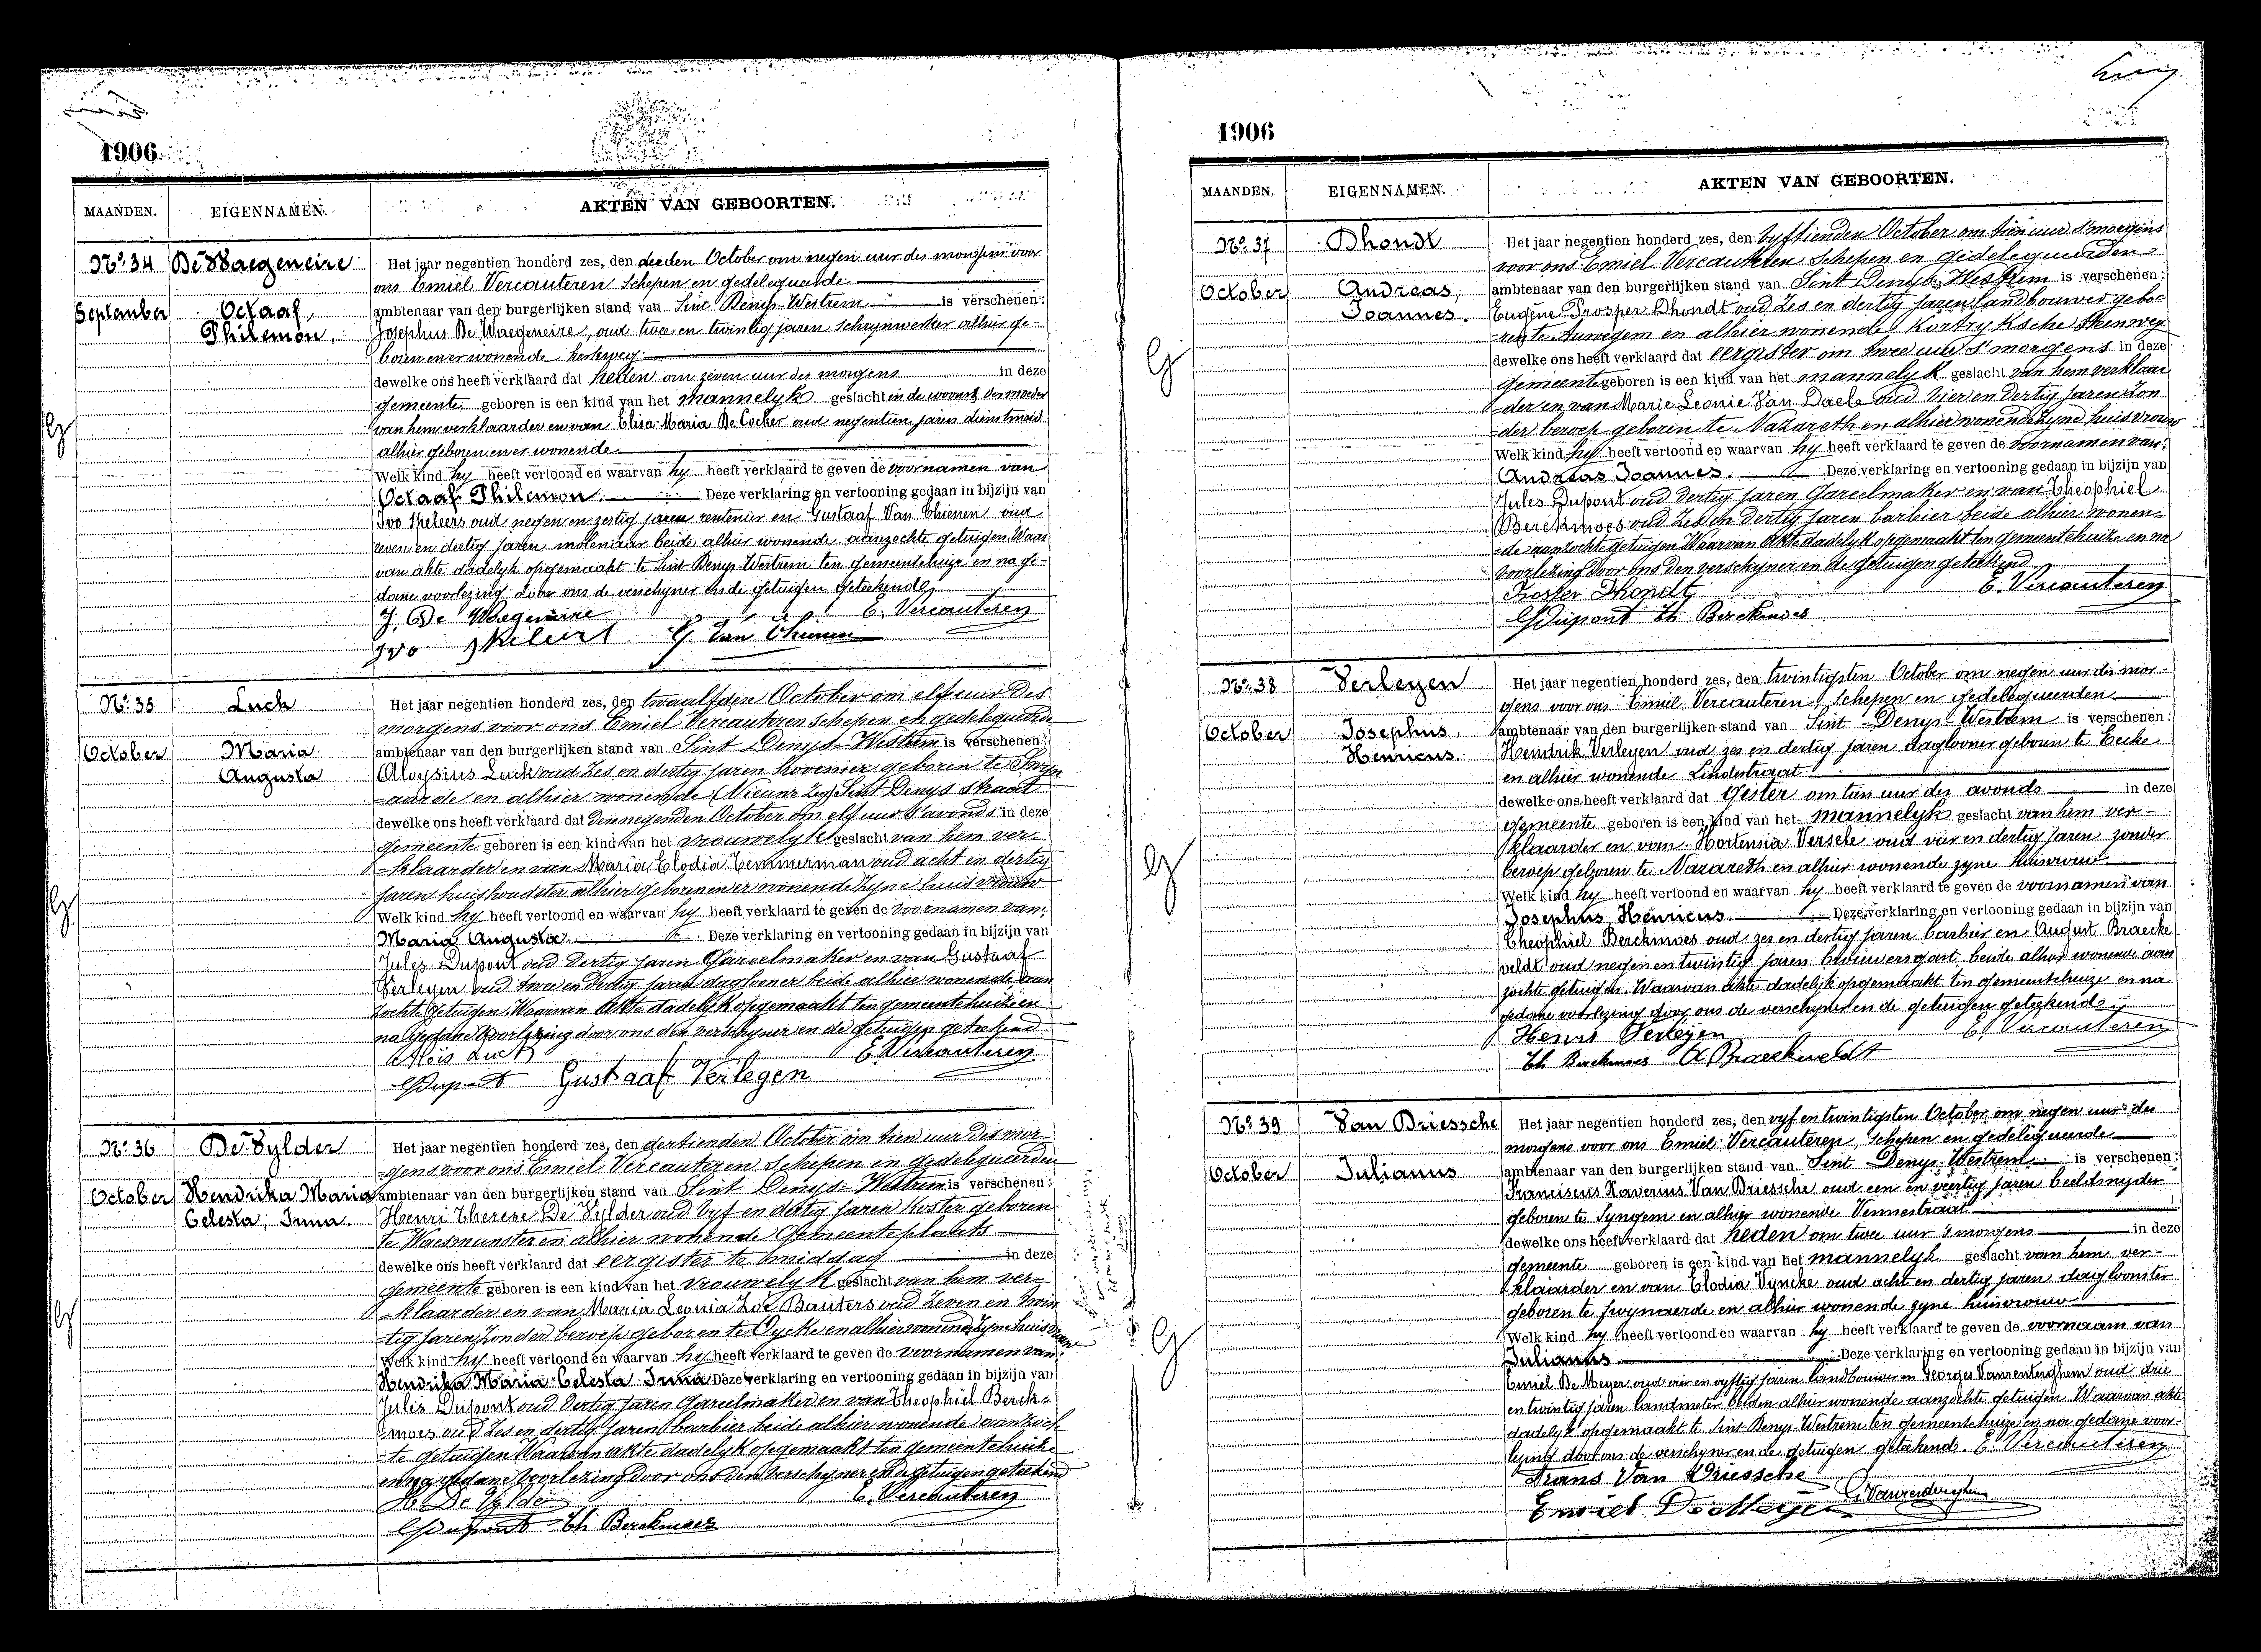 1906
MAANDEN. EIGENNAMEN. AKTEN VAN GEBOORTEN.
No. 34 De Waegeneire
September Octaaf, Philemon.
Het jaar negentien honderd zes, den derden October om negen uur des morgens voor
ons Emiel Vercauteren Schepen en gedelegueerde
ambtenaar van den burgerlijken stand van Sint Denys-Westrem is verschenen:
Josephus De Waegeneire, oud twee en twintig jaren schrynwerker alhier ge-
boren en er wonende kerkweg
dewelke ons heeft verklaard dat heden om zeven uur des morgens in deze
gemeente geboren is een kind van het mannelyk geslacht in de woonst der moeder
van hem verklaarder en van Elisa Maria De Cocker oud negentien jaren dienstmeid
alhier geboren en er wonende
Welk kind hy heeft vertoond en waarvan hy heeft verklaard te geven de voornamen van
Octaaf Philemon. Deze verklaring en vertooning gedaan in bijzijn van
Ivo Speleers oud negen en zestig jaren rentenier en Gustaaf Van Thienen oud
zeven en dertig jaren molenaar beide alhier wonende aanzochte getuigen Waar
van akte dadelyk opgemaakt te Sint Denys Westrem ten gemeentehuize en na ge-
dane voorlezing door ons de verschyner en de getuigen geteekend
J. De Waegeneire E. Vercauteren
Ivo Speleers G. Van Thienen
No. 35 Luck
October Maria Augusta
Het jaar negentien honderd zes, den twaalfden October om elf uur des
morgens voor ons Emiel Vercauteren Schepen en gedelegueerden
ambtenaar van den burgerlijken stand van Sint Denys-Westrem is verschenen:
Aloysius Luck oud zes en dertig jaren hovenier geboren te Swyn
-aarde en alhier wonende (Nieuwe zeg) Sint Denys Straat
dewelke ons heeft verklaard dat den negenden October om elf uur s'avonds in deze
gemeente geboren is een kind van het vrouwelyk geslacht van hem ver-
-klaarder en van Maria Elodia Temmerman oud acht en dertig
jaren huishoudster alhier geboren en er wonende zyne huisvrouw
Welk kind hy heeft vertoond en waarvan hy heeft verklaard te geven de voornamen van:
Maria Augusta Deze verklaring en vertooning gedaan in bijzijn van
Jules Dupont oud dertig jaren Gareelmaker en van Gustaaf
Verleyen oud twee en dertig jaren daglooner beide alhier wonende aan
zochte getuigen. Waarvan Akte dadelyk opgemaakt ten gemeentehuize en
na gedane voorlezing door ons den verschyner en de getuigen geteekend
Aloïs Luck E. Vercauteren
J Dupont Gustaaf Verlegen
No. 36 De Vylder
October Hendrika Maria Celesta, Irma.
Het jaar negentien honderd zes, den dertienden October om tien uur des mor-
-gens voor ons Emiel Vercauteren Schepen en gedelegueerden
ambtenaar van den burgerlijken stand van Sint Denys-Westrem is verschenen:
Henri Therese De Vylder oud vyf en dertig jaren koster geboren
te Waesmunster en alhier wonende Gemeenteplaats
dewelke ons heeft verklaard dat eergister te middag in deze
gemeente geboren is een kind van het vrouwelyk geslacht van hem ver-
-klaarder en van Maria Leonia Zoë Bauters oud zeven en twin
-tig jaren zonder beroep geboren te Eycke en alhier wonende zyne huisvrouw
Welk kind hy heeft vertoond en waarvan hy heeft verklaard te geven de voornamen van:
Hendrika Maria Celesta Irma Deze verklaring en vertooning gedaan in bijzijn van
Jules Dupont oud dertig jaren Gareelmaker en van Theophiel Berck-
-moes oud zes en dertig jaren barbier beide alhier wonende aanzoch
-te getuigen Waarvan akte dadelyk opgemaakt ten gemeentehuize
en na gedane voorlezing door ons den verschyner en de getuigen geteekend
H. De Vylder E. Vercauteren
J Dupont Th Berckmoes
1906
MAANDEN. EIGENNAMEN. AKTEN VAN GEBOORTEN.
No. 37 Dhondt
October Andreas, Joannes.
Het jaar negentien honderd zes, den vyftienden October om tien uur s'morgens
voor ons Emiel Vercauteren Schepen en gedelegueerden
ambtenaar van den burgerlijken stand van Sint Denys-Westrem is verschenen:
Eugène Prosper Dhondt oud zes en dertig jaren landbouwer gebo-
-ren te Auwegem en alhier wonende Kortryksche Steenweg
dewelke ons heeft verklaard dat eergister om twee uur s'morgens in deze
gemeente geboren is een kind van het mannelyk geslacht van hem verklaar
-der en van Marie Leonie Van Daele oud vier en dertig jaren zon
-der beroep geboren te Nazareth en alhier wonende zyne huisvrouw
Welk kind hy heeft vertoond en waarvan hy heeft verklaard te geven de voornamen van:
Andreas Joannes. Deze verklaring en vertooning gedaan in bijzijn van
Jules Dupont oud dertig jaren Gareelmaker en van Theophiel
Berckmoes oud zes en dertig jaren barbier beide alhier wonen-
-de aanzochte getuigen Waarvan Akte dadelyk opgemaakt ten gemeentehuize en na
voorlezing door ons den verschyner en de getuigen geteekend
Prosper Dhondt E. Vercauteren
J Dupont Th Berckmoes
No. 38 Verleyen
October Josephus, Henricus.
Het jaar negentien honderd zes, den twintigsten October om negen uur des mor-
gens voor ons Emiel Vercauteren, Schepen en gedelegueerden
ambtenaar van den burgerlijken stand van Sint Denys-Westrem is verschenen:
Hendrik Verleyen oud zes en dertig jaren daglooner geboren te Eecke
en alhier wonende Lindestraat.
dewelke ons heeft verklaard dat gister om tien uur des avonds in deze
gemeente geboren is een kind van het mannelyk geslacht van hem ver-
klaarder en van Hortensia Versele oud vier en dertig jaren zonder
beroep geboren te Nazareth en alhier wonende zyne huisvrouw
Welk kind hy heeft vertoond en waarvan hy heeft verklaard te geven de voornamen van
Josephus Henricus Deze verklaring en vertooning gedaan in bijzijn van
Theophiel Berckmoes oud zes en dertig jaren barbier en August Braecke
veldt oud negen en twintig jaren brouwersgast beide alhier wonende aan
zochte getuigen. Waarvan akte dadelyk opgemaakt ten gemeentehuize en na
gedane voorlezing door ons de verschyner en de getuigen geteekend
Henri Verleyen E. Vercauteren
Th Berckmoes A Braeckeveldt
No. 39 Van Driessche
October Julianus
Het jaar negentien honderd zes, den vyf en twintigsten October om negen uur des
morgens voor ons Emiel Vercauteren, schepen en gedelegueerde
ambtenaar van den burgerlijken stand van Sint Denys-Westrem is verschenen:
Franciscus Xaverius Van Driessche oud een en veertig jaren beeldsnyder
geboren te Syngem en alhier wonende Vennestraat
dewelke ons heeft verklaard dat heden om twee uur s'morgens in deze
gemeente geboren is een kind van het mannelyk geslacht van hem ver-
klaarder en van Elodia Vyncke oud acht en dertig jaren dagloonster
geboren te Swynaerde en alhier wonende zyne huisvrouw
Welk kind hy heeft vertoond en waarvan hy heeft verklaard te geven de voornaam van
Julianus Deze verklaring en vertooning gedaan in bijzijn van
Emiel De Meyer oud vier en vyftig jaren landbouwer en Georges Vanrenterghem oud drie
en twintig jaren landmeter beiden alhier wonende aanzochte getuigen. Waarvan akte
dadelyk opgemaakt te Sint Denys-Westrem ten gemeentehuize en na gedane voor-
lezing door ons de verschyner en de getuigen geteekend. E. Vercauteren
Frans Van Driessche
Emiel De Meyer G. Vanrenterghem